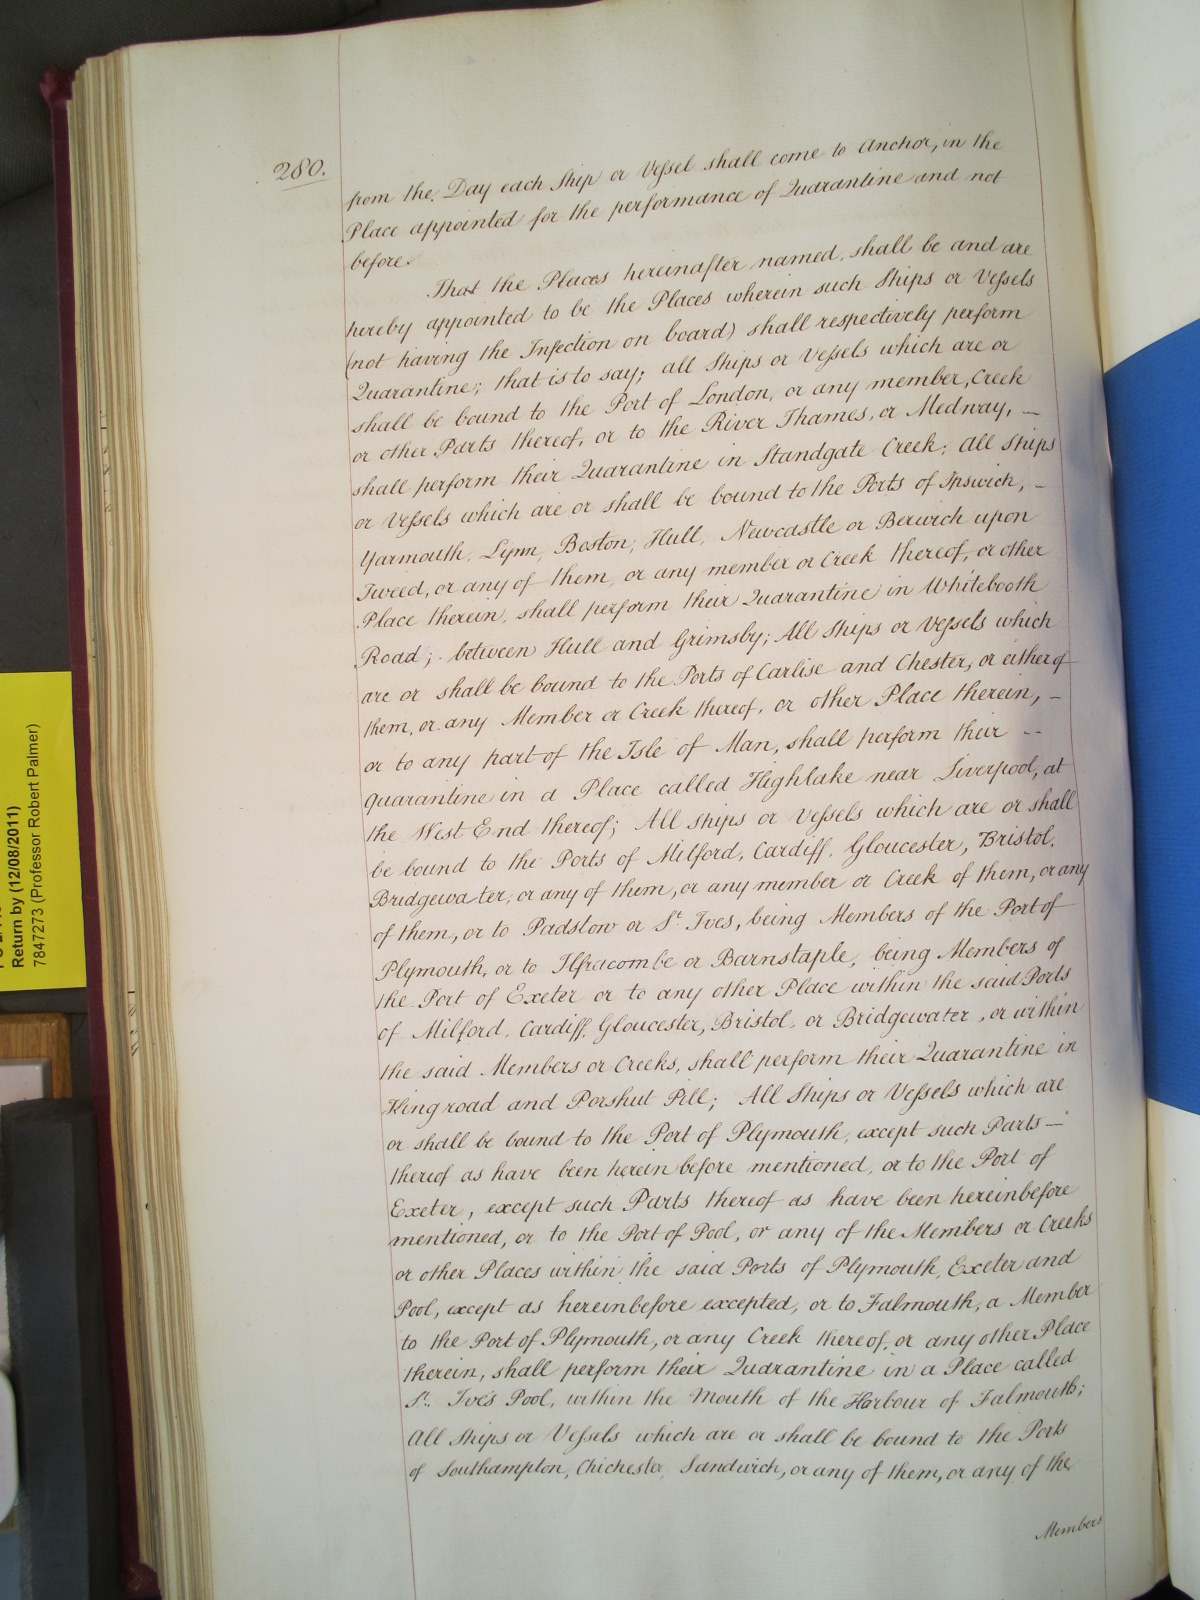 280.
from the Day each Ship or Vessel shall come to Anchor, in the
Place appointed for the performance of Quarantine and not
before.
That the Places hereinafter named, shall be and are
hereby appointed to be the Places wherein such Ships or Vessels
(not having the Infection on board) shall respectively perform
Quarantine; that is to say; all Ships or Vessels which are or
shall be bound to the Port of London, or any member, Creek
or other Parts thereof, or to the River Thames, or Medway, —
shall perform their Quarantine in Standgate Creek; All Ships
or Vessels which are or shall be bound to the Ports of Ipswich, –
Yarmouth, Lynn, Boston, Hull, Newcastle or Berwich upon
Tweed, or any of them, or any member or Creek thereof, or other
Place therein, shall perform their Quarantine in Whitebooth
Road; between Hull and Grimsby; All Ships or Vessels which
are or shall be bound to the Ports of Carlise and Chester, or either of
them, or any Member or Creek thereof, or other Place therein, –
or to any part of the Isle of Man, shall perform their --
Quarantine in a Place called Highlake near Liverpool, at
the West End thereof; All Ships or Vessels which are or shall
be bound to the Ports of Milford, Cardiff, Gloucester, Bristol,
Bridgewater, or any of them, or any member or Creek of them, or any
of them, or to Padstow or St. Ives, being Members of the Port of
Plymouth, or to Ilfracombe or Barnstaple, being Members of
the Port of Exeter or to any other Place within the said Ports
of Milford, Cardiff, Gloucester, Bristol, or Bridgewater, or within
the said Members or Creeks, shall perform their Quarantine in
Kingroad and Porshut Pill; All Ships or Vessels which are
or shall be bound to the Port of Plymouth, except such Parts —
thereof as have been herein before mentioned, or to the Port of
Exeter, except such Parts thereof as have been hereinbefore
mentioned, or to the Port of Pool, or any of the Members or Creeks
or other Places within the said Ports of Plymouth, Exeter and
Pool, except as hereinbefore excepted, or to Falmouth, a Member
to the Port of Plymouth, or any Creek thereof, or any other Place
therein, shall perform their Quarantine in a Place called
St. Ive's Pool, within the Mouth of the Harbour of Falmouth;
All Ships or Vessels which are or shall be bound to the Ports
of Southampton, Chichester, Sandwich, or any of them, or any of the
Members
Return by (12/08/2011)
7847273 (Professor Robert Palmer)